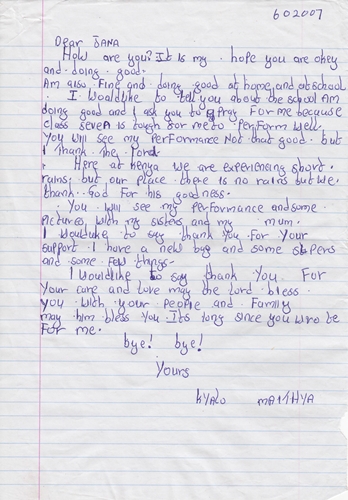 602007
Dear JANA
How are you? It is my hope you are obey
and doing good.
Am also Fine and doing good at home and at school
I Wouldlike to tell you about the school Am
doing good and I ask you to pray For me because
class seven is tough for me to perform well.
You will see my performance Not that good. but
I thank the Lord.
Here at kenya we are experiencing short
rains, but our place there is no rains but we.
thank God For his goodness.
You will see my performance and some
pictures with my sisters and my mum.
I wouldlike to say thank you For Your
support I have a new bag and some slipers
and some Few things.
I Wouldlike to say thank You For
Your care and love may the Lord bless
you with your people and Family
may him bless you Its long since you wrote
For me.
bye! bye!
Yours
kyalo MATHYA